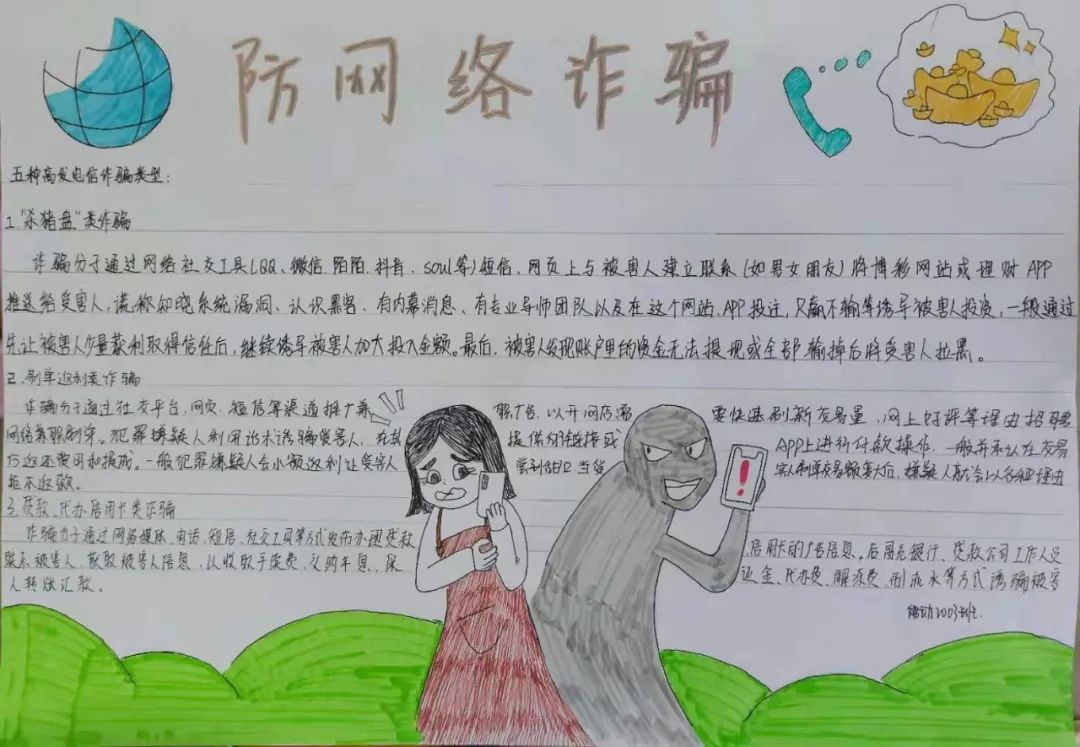 防网络诈骗
五种高发电信诈骗类型：
1."杀猪盘"类诈骗
诈骗分子通过网络社交工具(QQ、微信、陌陌、抖音、soul等)短信、网页上与被害人建立联系(如男女朋友)将博彩网站或理财APP
推送给受害人，谎称知晓系统漏洞、认识黑客、有内幕消息、有专业导师团队以及在这个网站、APP投注，只赢不输等诱导被害人投资，一般通过
先让被害人少量获利取得信任后，继续诱导被害人加大投入金额。最后，被害人发现账户里的资金无法提现或全部输掉后将受害人拉黑。
2.刷单返利类诈骗
诈骗分子通过社交平台、网页、短信等渠道推广兼职广告，以开网店需要快速刷新交易量，网上好评等理由招聘
网络兼职刷单。犯罪嫌疑人利用话术诱骗受害人，在其提供的链接或APP上进行付款操作，一般并承认在交易
后返还费用和提成。一般犯罪嫌疑人会小额返利让受害人尝到甜口，当受害人刷单交易额变大后，嫌疑人就会以各种理由
拒不返款。
3.贷款、代办信用卡类诈骗
诈骗分子通过网络媒体、电话、短信、社交工具等方式发布办理贷款、信用卡的广告信息。后冒充银行、贷款公司工作人员
联系被害人，获取被害人信息，以收取手续费、交纳年息、保证金、代办费、解冻费、刷流水等方式诱骗被害
人转账汇款。
能动2003班